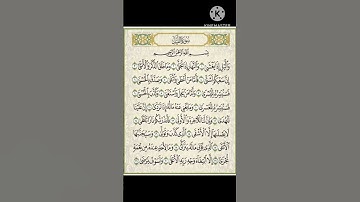 KINEMASTER
سُورَةُ اللَّيْلِ
بِسْمِ اللَّهِ الرَّحْمَٰنِ الرَّحِيمِ
وَالَّيْلِ إِذَا يَغْشَىٰ ١ وَالنَّهَارِ إِذَا تَجَلَّىٰ ٢ وَمَا خَلَقَ الذَّكَرَ وَالْأُنثَىٰ ٣
إِنَّ سَعْيَكُمْ لَشَتَّىٰ ٤ فَأَمَّا مَنْ أَعْطَىٰ وَاتَّقَىٰ ٥ وَصَدَّقَ بِالْحُسْنَىٰ ٦
فَسَنُيَسِّرُهُ لِلْيُسْرَىٰ ٧ وَأَمَّا مَن بَخِلَ وَاسْتَغْنَىٰ ٨ وَكَذَّبَ بِالْحُسْنَىٰ ٩
فَسَنُيَسِّرُهُ لِلْعُسْرَىٰ ١٠ وَمَا يُغْنِي عَنْهُ مَالُهُ إِذَا تَرَدَّىٰ ١١
إِنَّ عَلَيْنَا لَلْهُدَىٰ ١٢ وَإِنَّ لَنَا لَلْآخِرَةَ وَالْأُولَىٰ ١٣ فَأَنذَرْتُكُمْ نَارًا تَلَظَّىٰ ١٤
لَا يَصْلَاهَا إِلَّا الْأَشْقَى ١٥ الَّذِي كَذَّبَ وَتَوَلَّىٰ ١٦ وَسَيُجَنَّبُهَا
الْأَتْقَى ١٧ الَّذِي يُؤْتِي مَالَهُ يَتَزَكَّىٰ ١٨ وَمَا لِأَحَدٍ عِندَهُ مِن نِّعْمَةٍ
تُجْزَىٰ ١٩ إِلَّا ابْتِغَاءَ وَجْهِ رَبِّهِ الْأَعْلَىٰ ٢٠ وَلَسَوْفَ يَرْضَىٰ ٢١